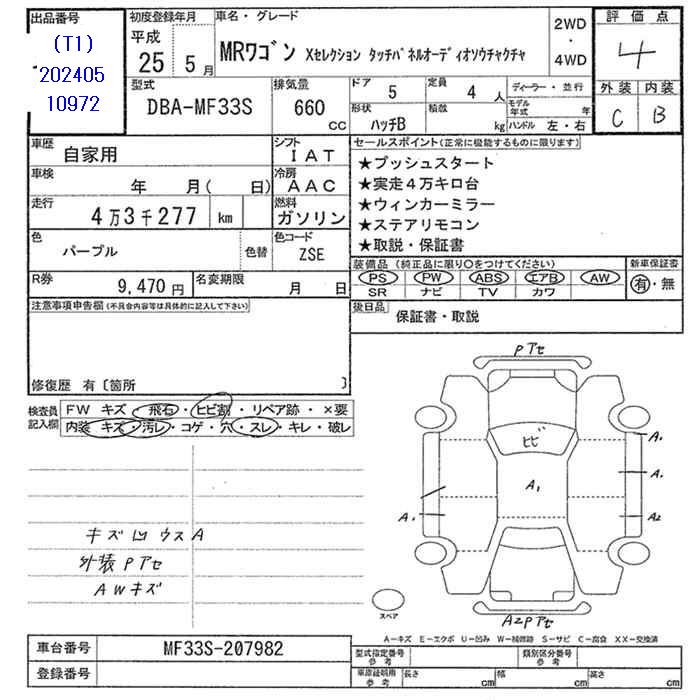 出品番号
(T1)
202405
10972
初度登録年月
平成
25 5月
車名・グレード
MRワゴン Xセレクション タッチパネルオーディオソウチャクチャ
2WD
・
4WD
評価点
4
外装 内装
C B
型式
DBA-MF33S
排気量
660
CC
ドア
5
定員
4人
形状
ハッチB
積載
kg
ディーラー・並行
モデル年式 年
ハンドル 左・右
車歴
自家用
シフト
IAT
車検
年 月( 日)
冷房
AAC
走行
4万3千277 km
燃料
ガソリン
色
パープル
色替
色コード
ZSE
R券
9,470円
名変期限
月 日
セールスポイント(正常に機能するものに限ります)
★プッシュスタート
★実走4万キロ台
★ウィンカーミラー
★ステアリモコン
★取説・保証書
装備品(純正品に限り○をつけてください)
PS PW ABS エアB AW
SR ナビ TV カワ
新車保証書
有・無
後日品
保証書・取説
注意事項申告欄(不具合内容等は具体的に記入して下さい)
修復歴 有〔箇所 〕
検査員記入欄
FW キズ・飛石・ヒビ割・リペア跡・×要
内装 キズ・汚レ・コゲ・穴・スレ・キレ・破レ
キズ凹ウスA
外装Pアセ
AWキズ
Pアセ
ヒビ
A1
A1
A1
A1
A2
A2Pアセ
スペア
A-キズ E-エクボ U-凹み W-補修跡 S-サビ C-腐食 XX-交換済
車台番号
MF33S-207982
登録番号
型式指定番号
参考
類別区分番号
参考
車庫証明用
参考
長さ cm
幅 cm
高さ cm